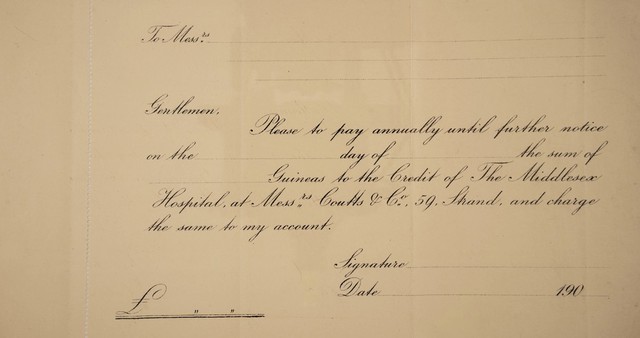 To Mess.rs
Gentlemen,
Please to pay annually until further notice
on the day of the sum of
Guineas to the Credit of The Middlesex
Hospital, at Mess.rs Coutts & Co., 59, Strand, and charge
the same to my account.
Signature
Date 190
£ " "